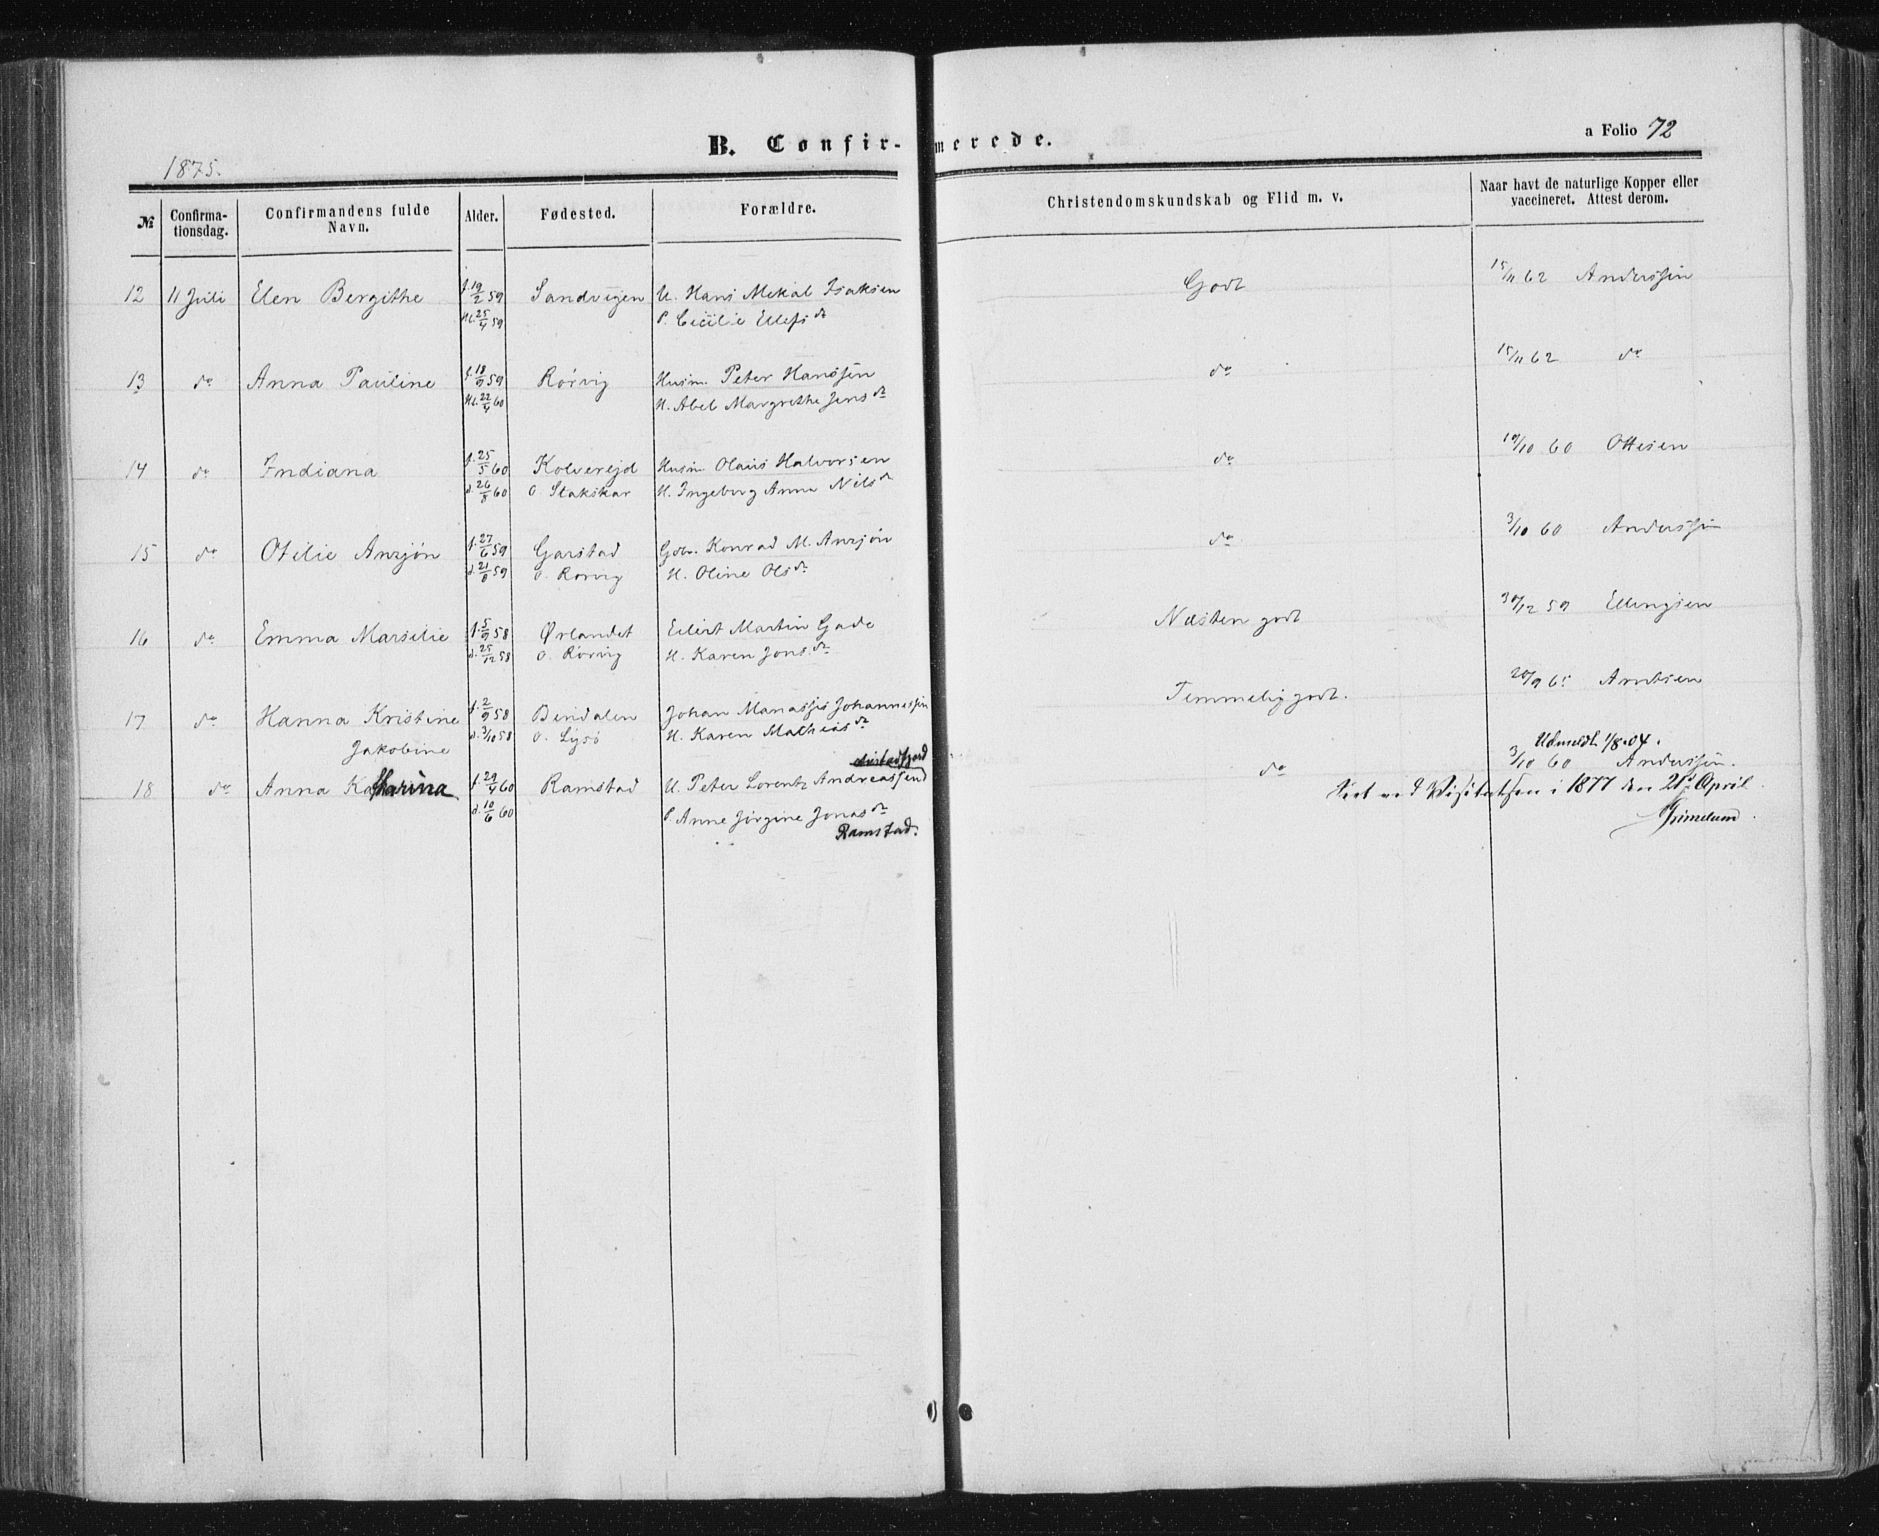 B. Confir- merede.
a Folio 72
1875.
№ Confirma-tionsdag. Confirmandens fulde Navn. Alder. Fødested. Forældre. Christendomskundskab og Flid m. v. Naar havt de naturlige Kopper eller vaccineret. Attest derom.
12 11 Juli Elen Bergithe f. 19/2 59 Sandvigen U. Hans Mekal Isaksen Godt 15/11 62 Anderssen
Hd. 25/4 59 P. Cecilie Ellefsdr
13 do Anna Pauline f. 18/9 59 Rørvig Husm. Peter Hanssen do 15/11 62 do
Hd. 22/4 60 H. Abel Margrethe Jensdr
14 do Indiana f. 25/5 60 Kolvereid Husm Olaus Halvorsen do 19/10 60 Ottesen
d. 26/8 60 O. Stakskar H. Ingeborg Anna Nilsdr
15 do Otilie Anzjøn f. 27/6 59 Garstad Gdbr. Konrad M. Anzjøn do 3/10 60 Anderssen
d. 21/8 59 O. Rørvig H. Oline Olsdr
16 do Emma Marselie f. 5/9 58 Ørlandet Eilert Martin Gade Næsten godt 30/12 59 Ellingsen
d. 25/12 58 O. Rørvig H. Karen Jonsdr
17 do Hanna Kristine f. 2/9 58 Bindalen Johan Manasses Johannessen Temmelig godt. 20/9 65 Arntsen
Jakobine d. 3/10 58 O. Lysø H. Karen Mathiasdr
Udmeldt 1/8-04.
18 do Anna Katharina f. 29/4 60 Ramstad U. Peter Lorentz Andreassen do 3/10 60 Anderssen.
d. 10/6 60 P. Anne Jørgine Jonasdr
Ramstad.
ved Visitatsen i 1877 den 21de April.
Grimelund